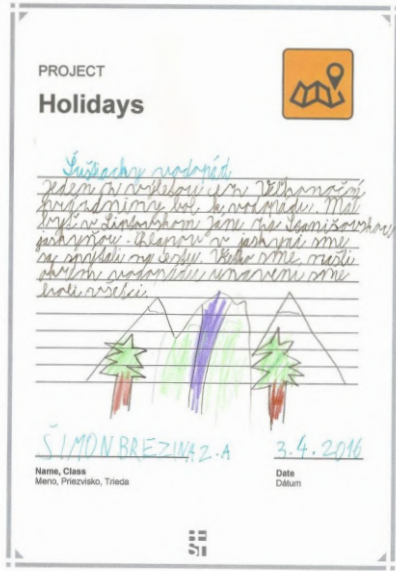 PROJECT
Holidays
vodopád
Jeden z výletov cez Veľkonočné
prázdniny bol k vodopádu. Mal
byť v Liptovskom Jáne za Stanišovskou
jaskyňou. v jaskyni sme
sa na cestu. sme našli
okrem vodopádu unavení sme
boli všetci.
ŠIMON BREZINA 2.A
3.4.2016
Name, Class
Meno, Priezvisko, Trieda
Date
Dátum